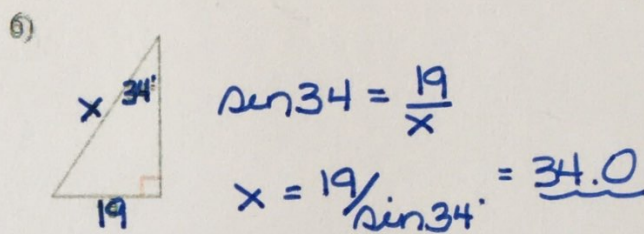 6)
x 34°
19
sin34 = 19/x
x = 19/sin34° = 34.0